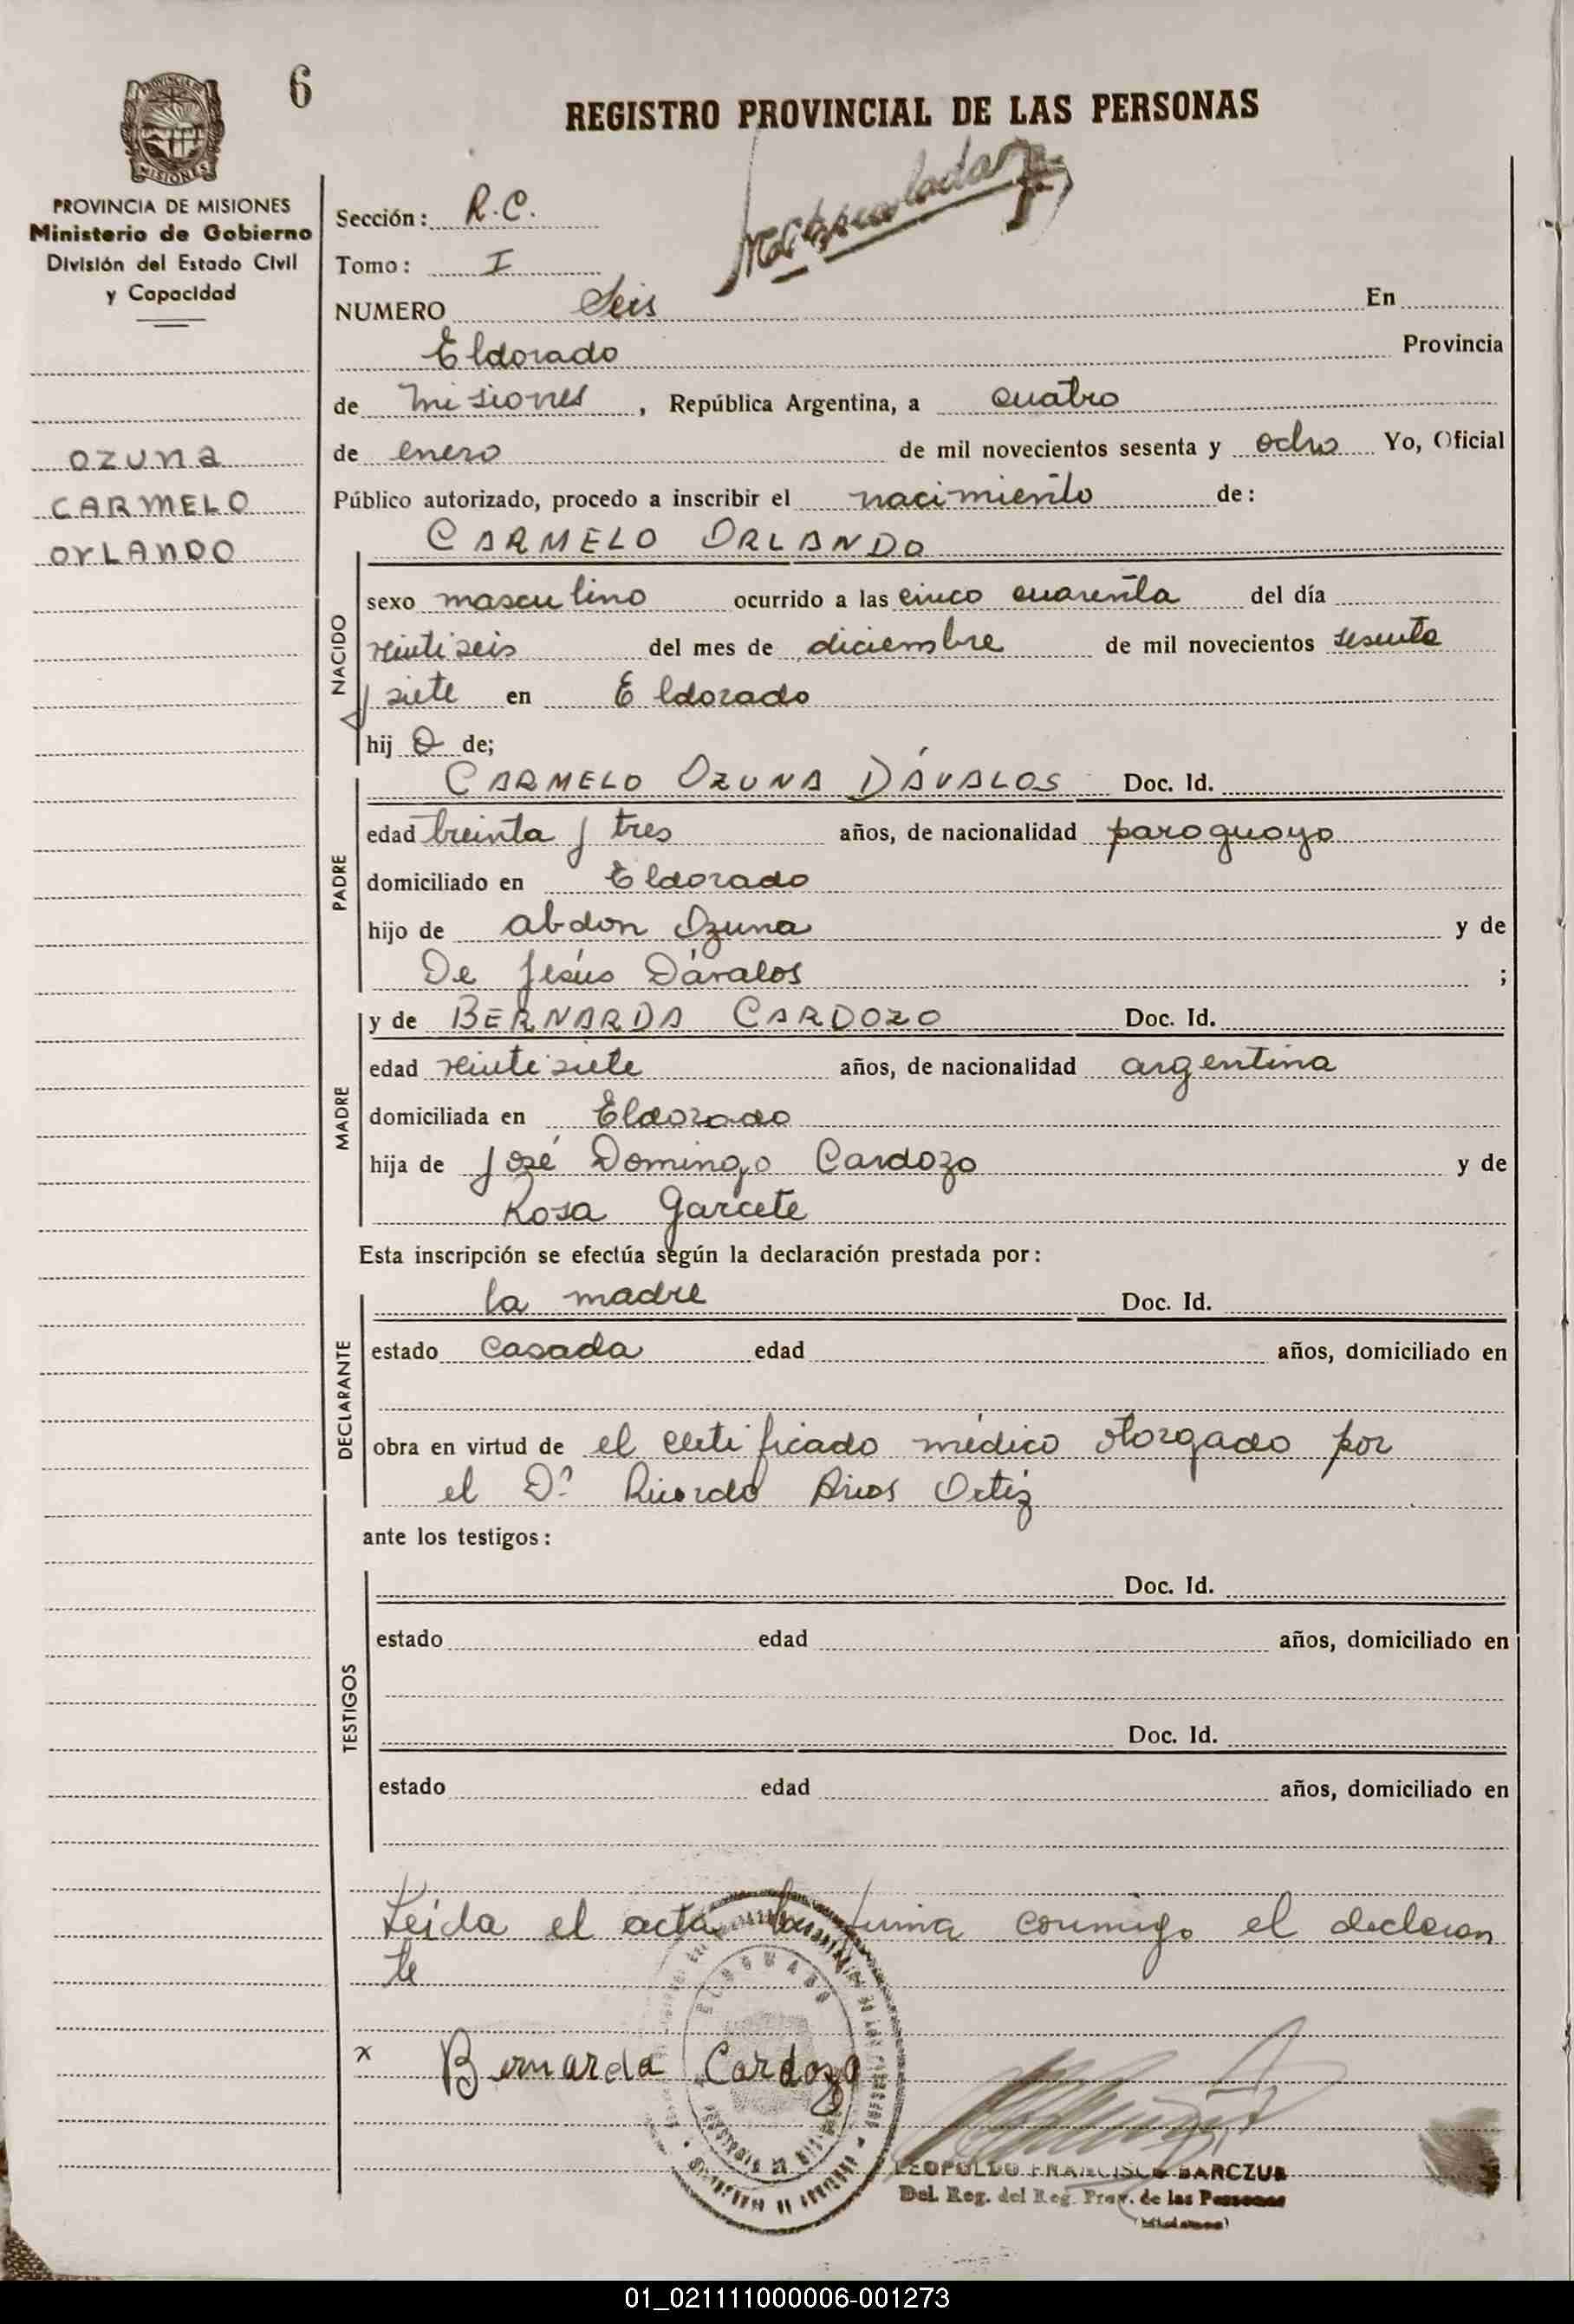 6
REGISTRO PROVINCIAL DE LAS PERSONAS
MISIONES
PROVINCIA DE MISIONES
Ministerio de Gobierno
División del Estado Civil
y Capacidad
OZUNA
CARMELO
OrLANDO
Sección: R.C.
Tomo: I
NUMERO Seis En
Eldorado Provincia
de Misiones, República Argentina, a cuatro
de enero de mil novecientos sesenta y ocho Yo, Oficial
Público autorizado, procedo a inscribir el nacimiento de:
CARMELO ORLANDO
NACIDO
sexo masculino ocurrido a las cinco cuarenta del día
veintiseis del mes de diciembre de mil novecientos sesenta
y siete en Eldorado
hijo de;
CARMELO OZUNA DÁVALOS Doc. Id.
PADRE
edad treinta y tres años, de nacionalidad paraguayo
domiciliado en Eldorado
hijo de Abdon Ozuna y de
De Jesús Dávalos ;
y de BERNARDA CARDOZO Doc. Id.
MADRE
edad veintisiete años, de nacionalidad argentina
domiciliada en Eldorado
hija de José Domingo Cardozo y de
Rosa Garcete
Esta inscripción se efectúa según la declaración prestada por:
la madre Doc. Id.
DECLARANTE
estado casada edad años, domiciliado en
obra en virtud de el certificado médico otorgado por
el Dr Ricardo Rios Ortiz
ante los testigos:
Doc. Id.
TESTIGOS
estado edad años, domiciliado en
Doc. Id.
estado edad años, domiciliado en
Leída el acta la firma conmigo el declaran
te
ELDORADO
x Bernarda Cardozo
LEOPOLDO FRANCISCO BARCZUK
Del. Reg. del Reg. Prov. de las Personas
(Misiones)
01_021111000006-001273